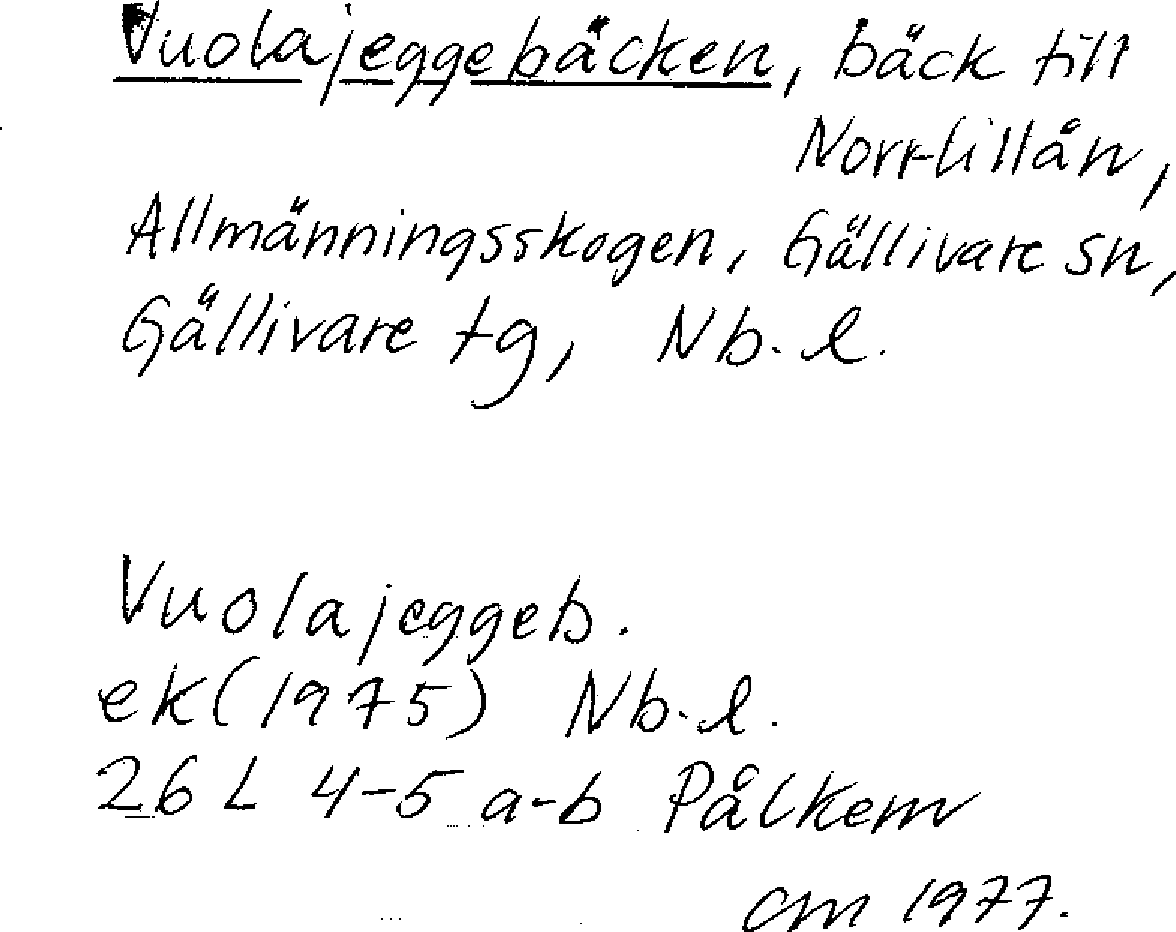 Vuolajeggebäcken, bäck till
Norr-Lillån,
Allmänningsskogen, Gällivare sn,
Gällivare tg, Nb. l.
Vuolajeggeb.
ek (1975) Nb. l.
26 L 4-5 a-b Pålkem
cm 1977.